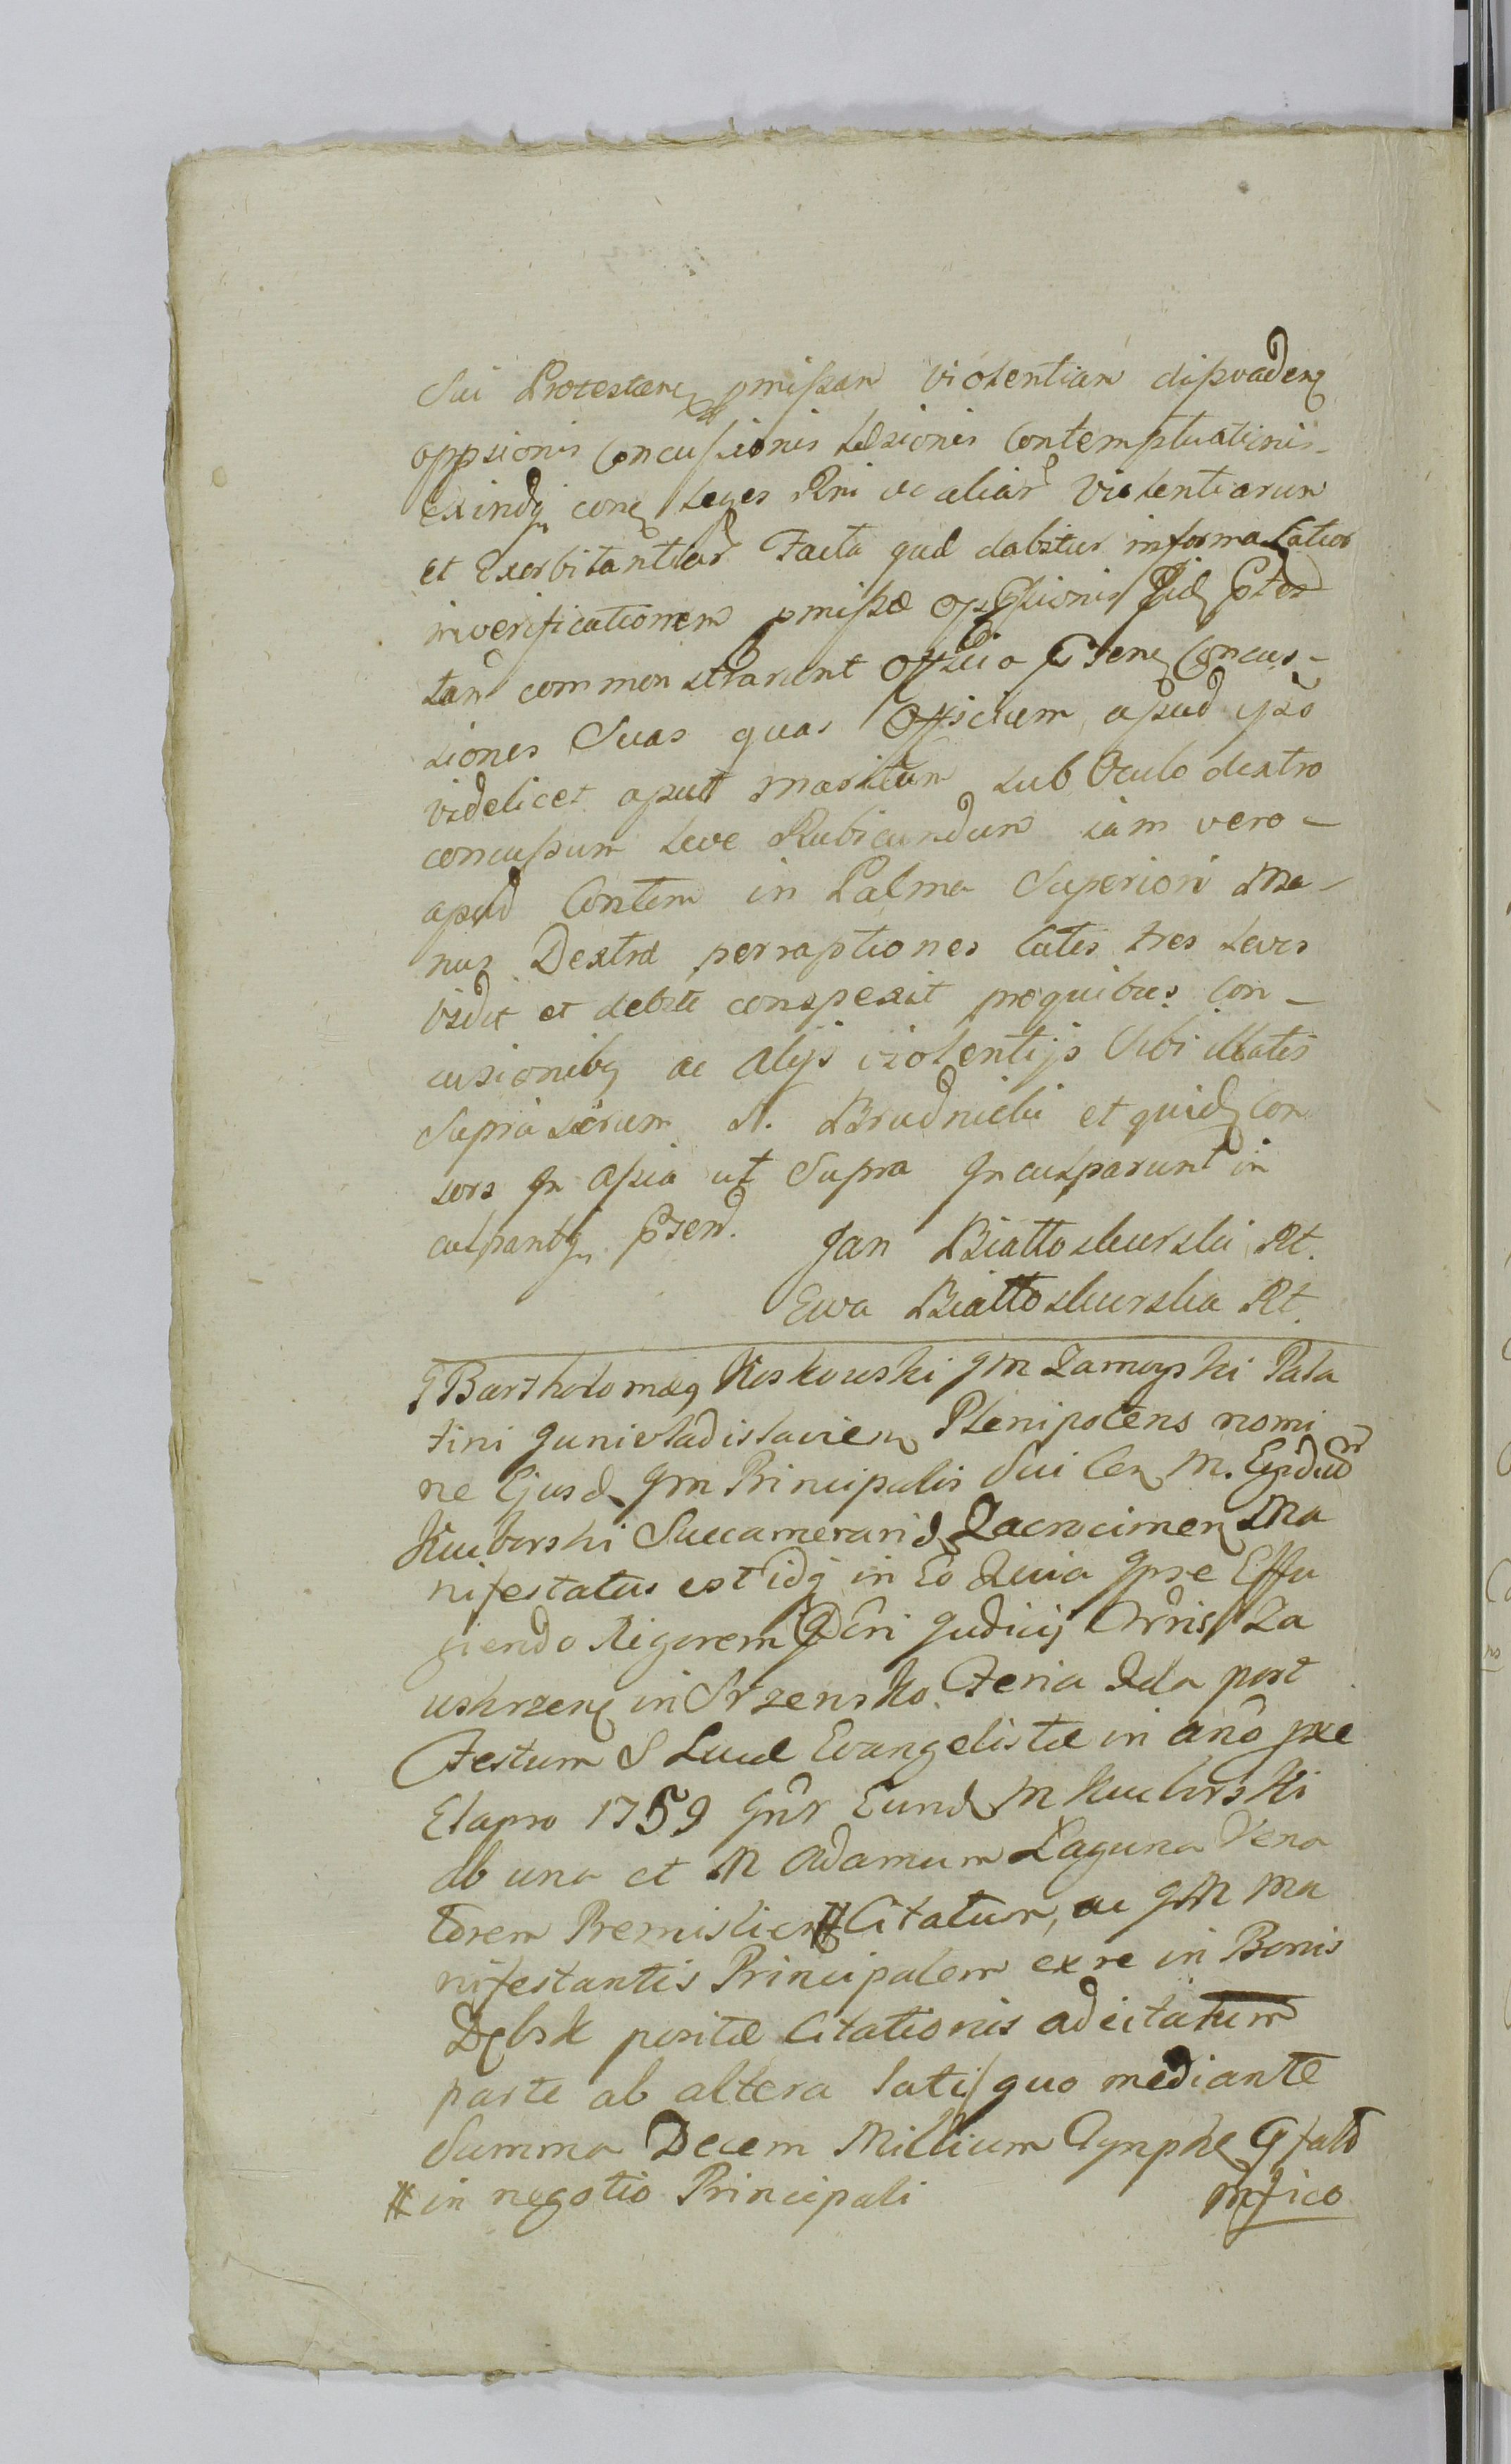 Sui Protestan pmissam violentiam dissvaden
oppsionis Concussionis Lesionis Contemptuationis
exindq con leges Rni ac aliar Violentiarum
et Exorbitantiar Facta qud dabitur informa Latior
inverificationem pmissæ oppssionis iid Ptes
tan commonstrarunt Officio psen Concus-
siones Suas quas Officium apud ipso
videlicet apud maritum sub Oculo dextro
concussum leve Rubicundum iam vero -
apud Contem in Palma Superiori Ma-
nus Dextræ perraptiones cutis tres leves
vidit et debite conspexit proquibus Con-
cusionibq ac alijs violentijs Sibi illatis
Supra N. Brudnicki et quid con
sors In assia ut Supra Inculparunt in
culpantq psen. Jan Biallo skurski Rt.
Ewa Biallo skurska Rt.
G Bartholomæq Koskowski JM Zamoyski Pala
tini Junivladislavien Plenipotens nomi
ne Ejusd JM Principalis Sui Con M. Egidiu
Kuckorski Succamerarid Zacrocimen Ma
nifestatus est idq in Eo Quia Ipse Effu
giendo Rigorem Dcri Judicij Ordris Za
wskrzen in Srzensko Feria 2da post
Festum S Lucæ Evangelistæ in ano pxe
Elapso 1759 Intr Eund M Kuckorski
ab una et M Adamum Laguna Vena
torem Premislien # Citatum, ac JM Ma
nifestantis Principalem exre in Bonis
Dębsk positæ Citationis adcitatum
parte ab altera lati quo mediante
Summa Decem Millium Tymphe G fato
# in negotio Principali
Mfico